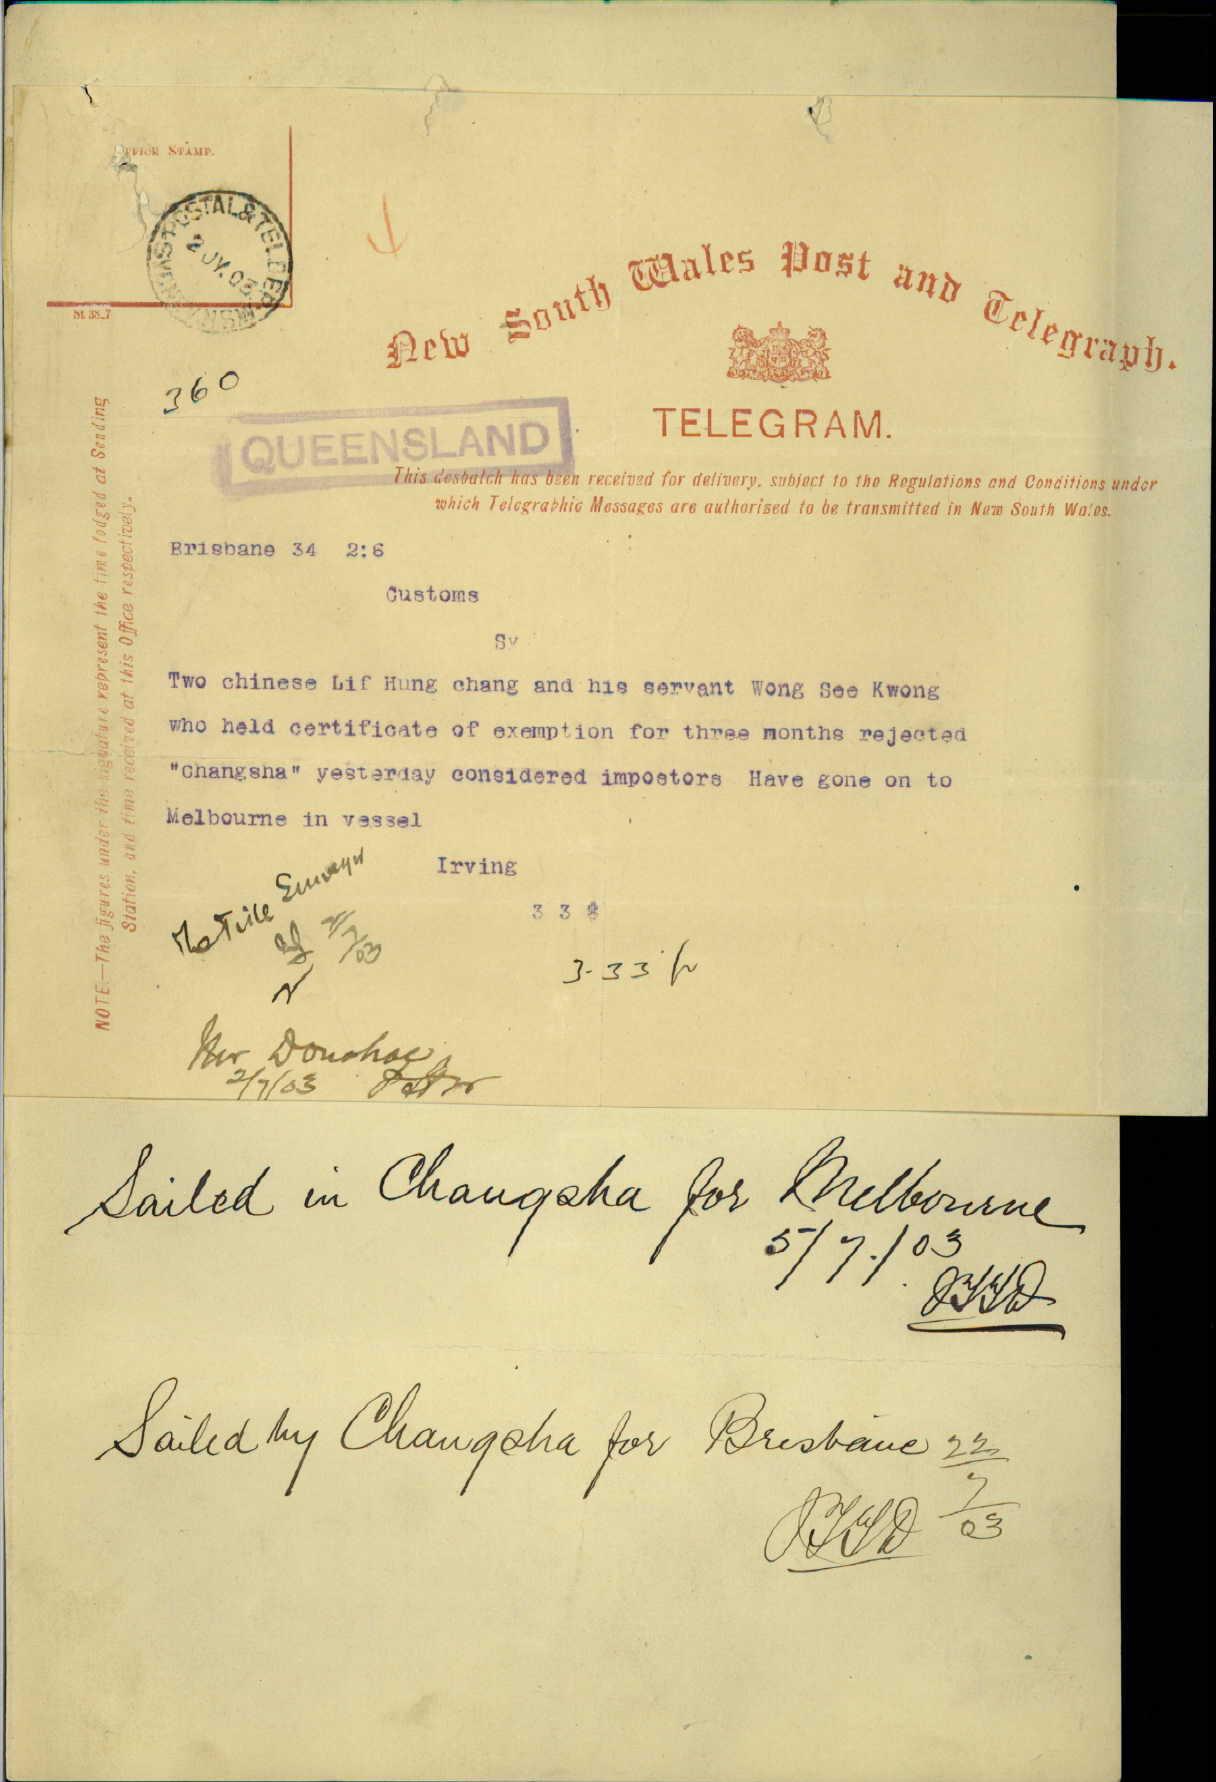 OFFICE STAMP.
POSTAL & TEL. DEP.
2 JY. 03
St. 38_7
New South Wales Post and Telegraph.
TELEGRAM.
360
QUEENSLAND
This despatch has been received for delivery, subject to the Regulations and Conditions under
which Telegraphic Messages are authorised to be transmitted in New South Wales.
NOTE.—The figures under the signature represent the time lodged at Sending
Station, and time received at this Office respectively.
Brisbane 34 2:6
Customs
Sy
Two chinese Lif Hung chang and his servant Wong See Kwong
who held certificate of exemption for three months rejected
"Changsha" yesterday considered impostors Have gone on to
Melbourne in vessel
Irving
3 3
The Tide Surveyor
2/7/03
3-33 p
Mr Donohoe
2/7/03
Sailed in Changsha for Melbourne
5/7./03
JTTD
Sailed by Changsha for Brisbane 22/7/03
JTTD